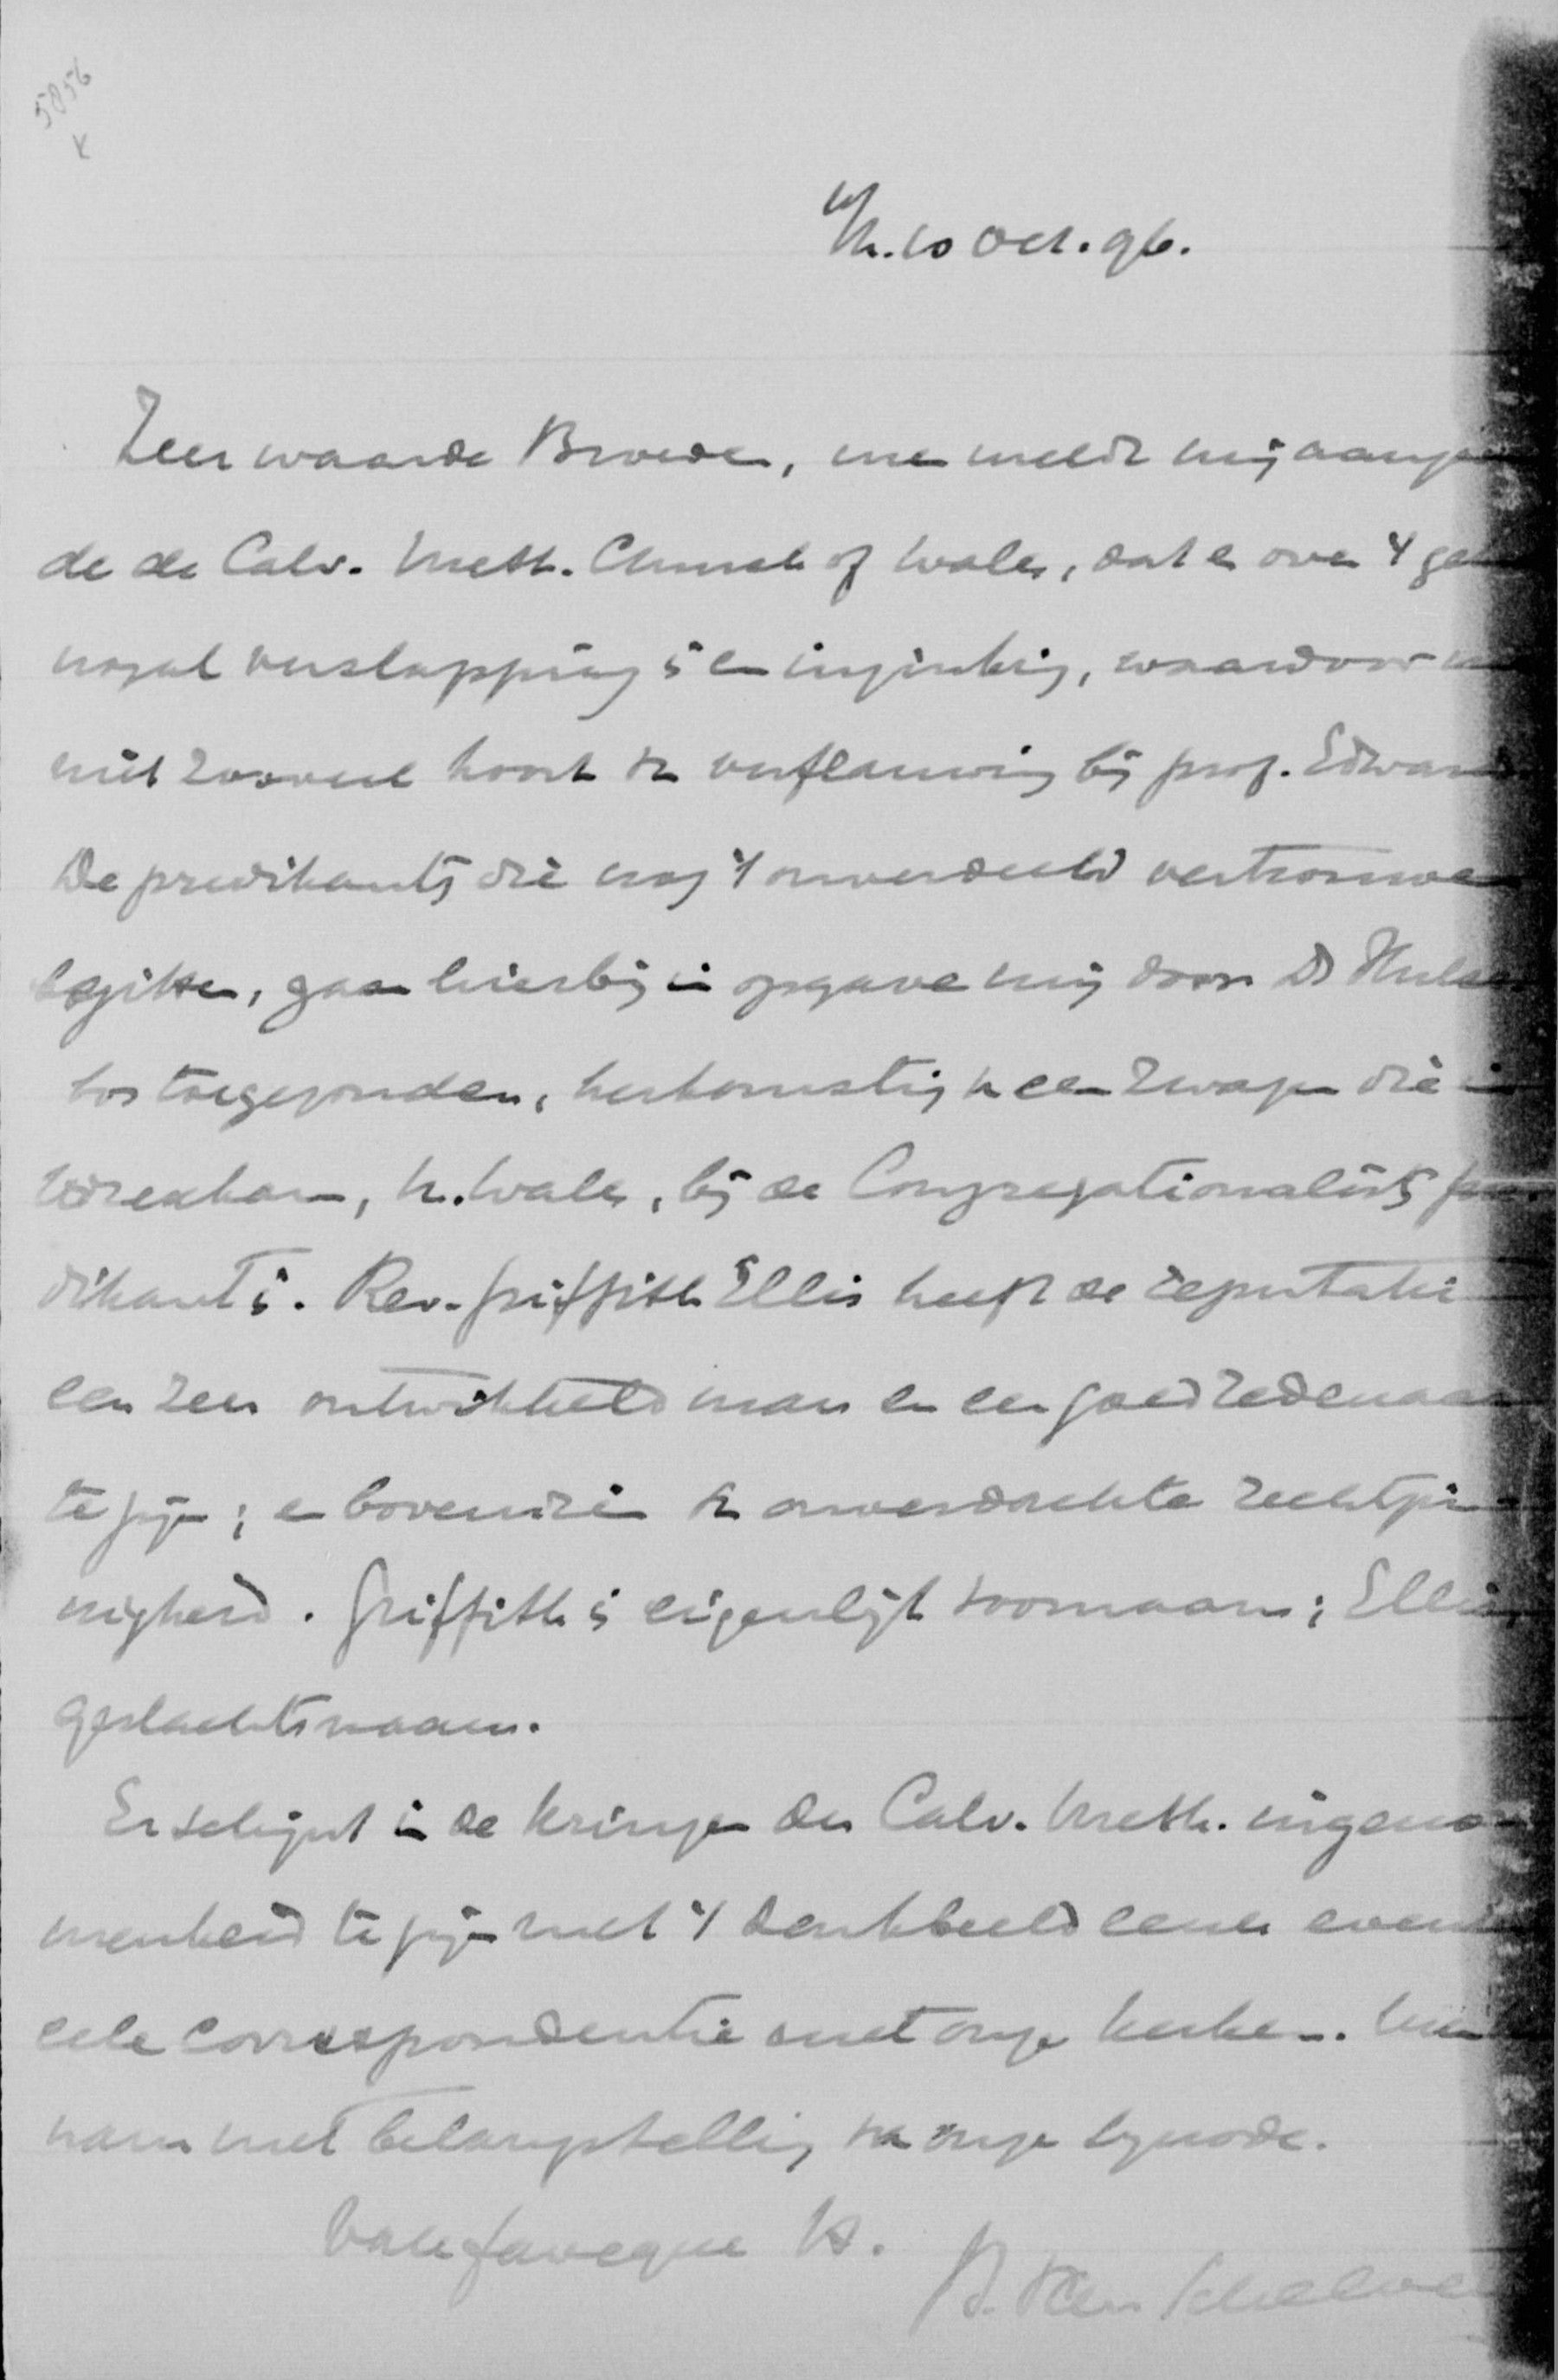 5856
K
10 Oct. 96.
Zeer waarde Broeder, men meldt mij aangaan
de de Calv. Meth. Church of Wales, dat er over 't geh
nogal verslapping is en inzinking, waardoor
niet zooveel hoort v. verflauwing bij prof. Edwards
De predikants die nog 't onverdeeld vertrouwen
bezitten, gaan hierbij in opgave mij door Ds Hulse
bos toegezonden, herkomstig v. een zwager die in
Wrexham, N. Wales, bij de Congregationalists pre
dikant is. Rev. Griffith Ellis heeft de reputatie
een zeer ontwikkeld man en een goed redenaar
te zijn; en bovendien v. onverdachte rechtzin
nigheid. Griffith is eigenlijk voornaam; Ellis
geslachtsnaam.
Er schijnt in de kringen der Calv. Meth. ingeno
menheid te zijn met 't denkbeeld eener eventu
eele correspondentie met onze kerken. Men
nam met belangstelling onze synode.
Vale faveque